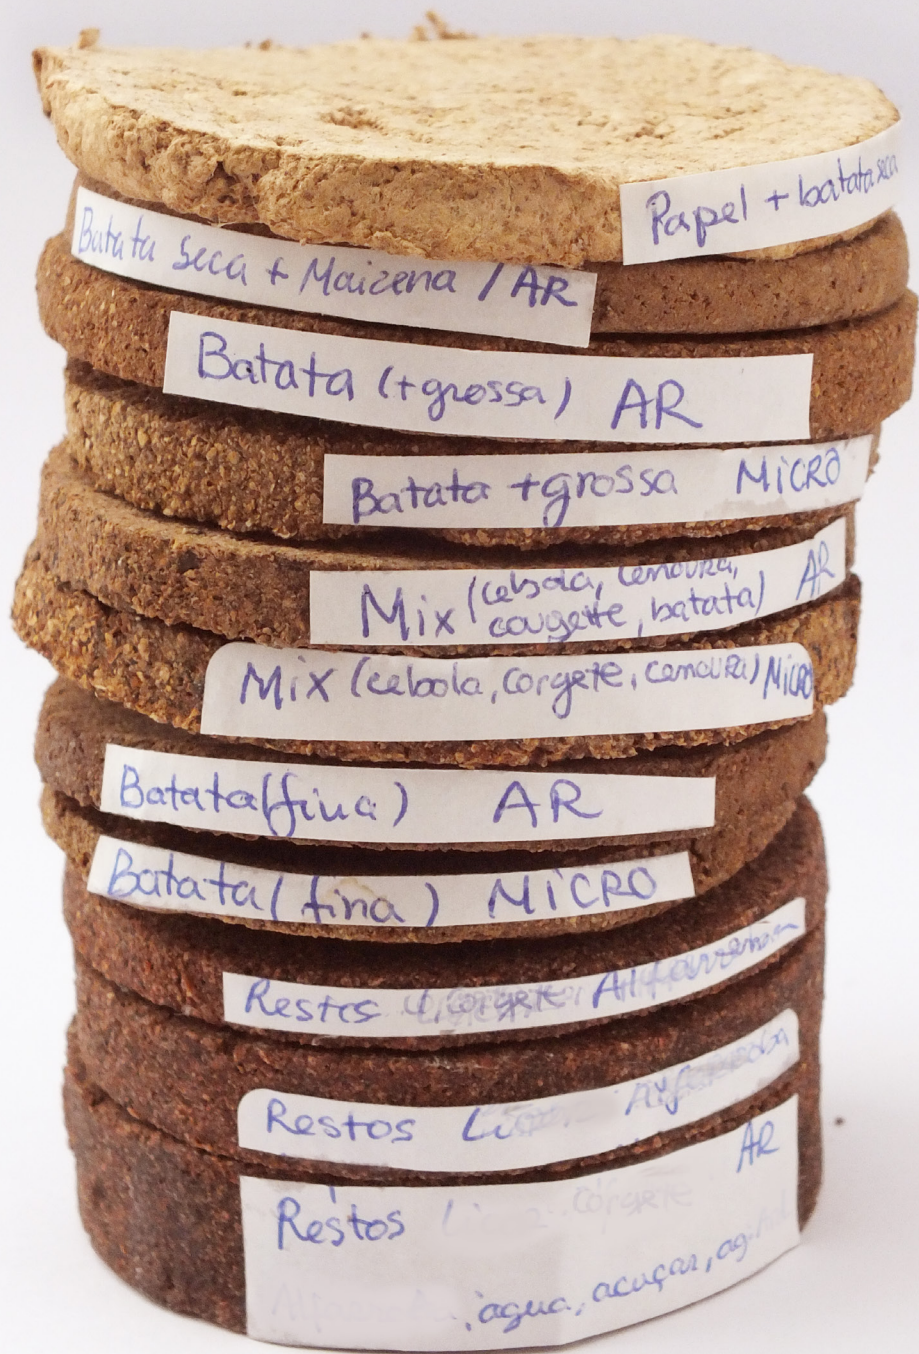 Papel + batata seca
Batata Seca + Maizena / AR
Batata (+grossa) AR
Batata +grossa MiCRO
Mix (cebola, cenoura,
cougette, batata) AR
Mix (cebola, corgete, cenoura) MiCRO
Batata (fina) AR
Batata (fina) MiCRO
Restos corgete
Restos
AR
Restos corgete
, agua, acuçar,